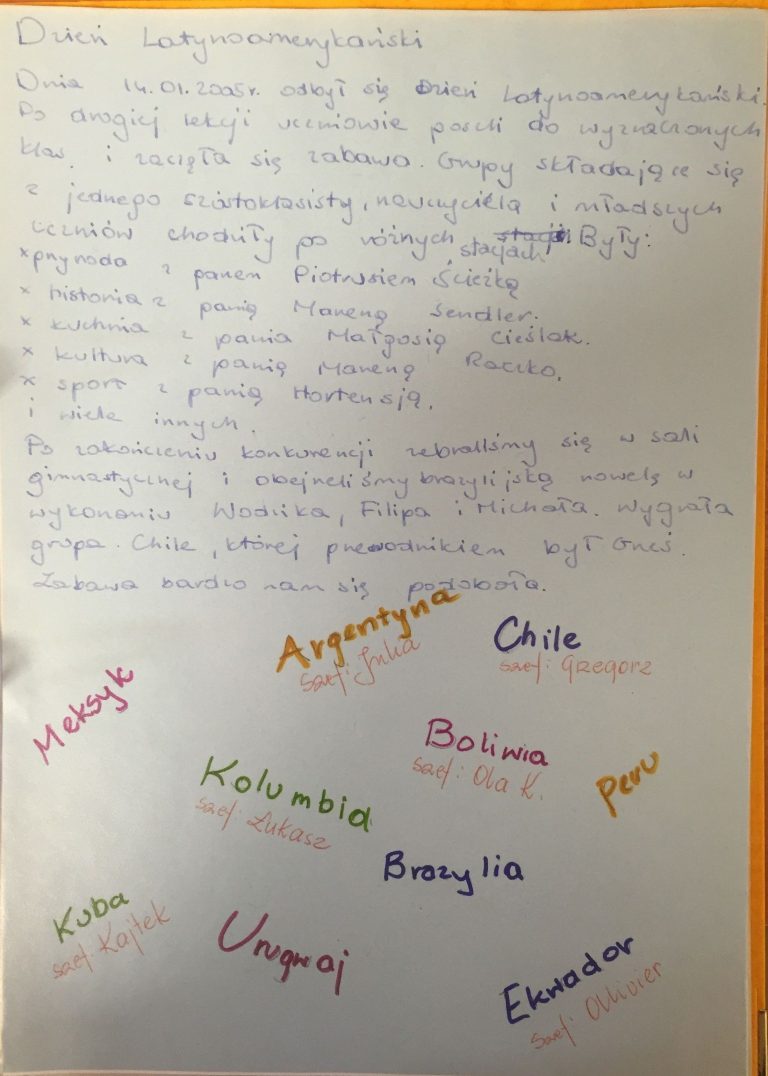 Dzień Latynoamerykański
Dnia 14.01.2005r. odbył się Dzień Latynoamerykański.
Po drogiej lekcji uczniowie poszli do wyznaczonych
klas. i zaczęła się zabawa. Grupy składające się
z jednego szóstoklasisty, nauczyciela i młodszych
uczniów chodziły po różnych stacjach. Były:
x przyroda z panem Piotrusiem Ścieżką
x historia z panią Mareną Sendler.
x kuchnia z pania Małgosią Cieślak.
x kultura z panią Mareną Raczko.
x sport z panią Hortensją.
i wiele innych.
Po zakończeniu konkurencji zebraliśmy się w sali
gimnastycznej i obejrzeliśmy brazylijską nowelę w
wykonaniu Wodzika, Filipa i Michała. Wygrała
grupa Chile, której przewodnikiem był Grześ.
Zabawa bardzo nam się podobała.
Argentyna
szef: Julia
Chile
szef: Grzegorz
Meksyk
Boliwia
szef: Ola K.
Peru
Kolumbia
szef: Łukasz
Brazylia
Kuba
szef: Kajtek
Urugwaj
Ekwador
szef: Ollivier